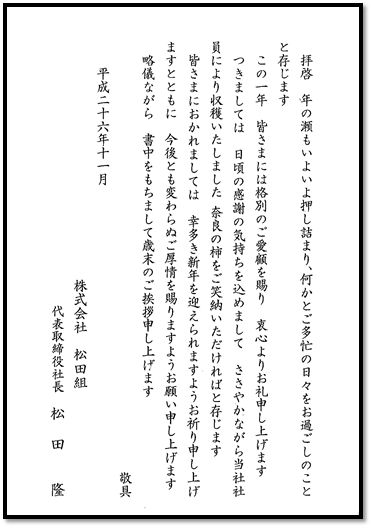 拝啓　年の瀬もいよいよ押し詰まり、何かとご多忙の日々をお過ごしのこと
と存じます
この一年　皆さまには格別のご愛顧を賜り　衷心よりお礼申し上げます
つきましては　日頃の感謝の気持ちを込めまして　ささやかながら当社社
員により収穫いたしました　奈良の柿をご笑納いただければと存じます
皆さまにおかれましては　幸多き新年を迎えられますようお祈り申し上げ
ますとともに　今後とも変わらぬご厚情を賜りますようお願い申し上げます
略儀ながら　書中をもちまして歳末のご挨拶申し上げます
敬具
平成二十六年十一月
株式会社　松田組
代表取締役社長　松　田　　隆